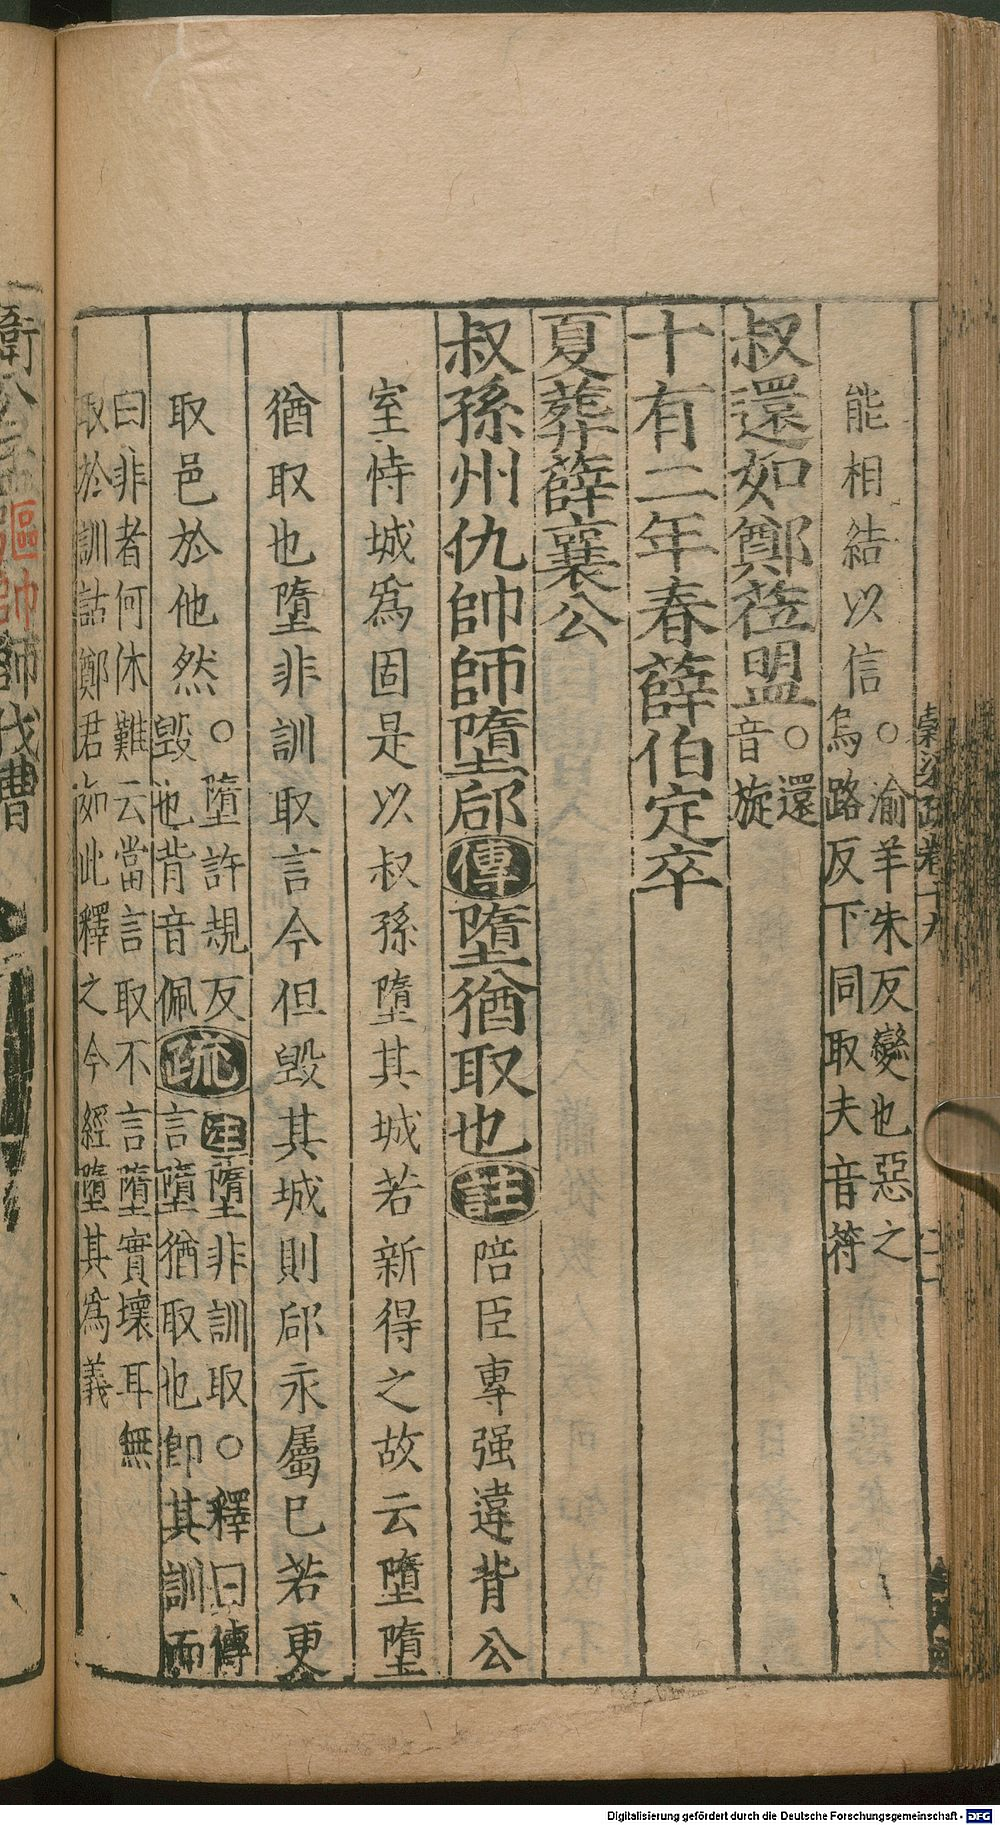 能相結以信○渝羊朱反變也惡之
烏路反下同取夫音符
叔還如鄭莅盟○還
音旋
十有二年春薛伯定卒
夏葬薛襄公
叔孫州仇帥師墮郈傳墮猶取也註陪臣專强違背公
室恃城爲固是以叔孫墮其城若新得之故云墮墮
猶取也墮非訓取言今但毁其城則郈永屬已若更
取邑於他然○墮許規反
毁也背音佩疏注墮非訓取○釋曰傳
言墮猶取也卽其訓而
曰非者何休難云當言取不言墮實壞耳無
取於訓詁鄭君如此釋之今經墮其爲義
Digitalisierung gefördert durch die Deutsche Forschungsgemeinschaft - DFG